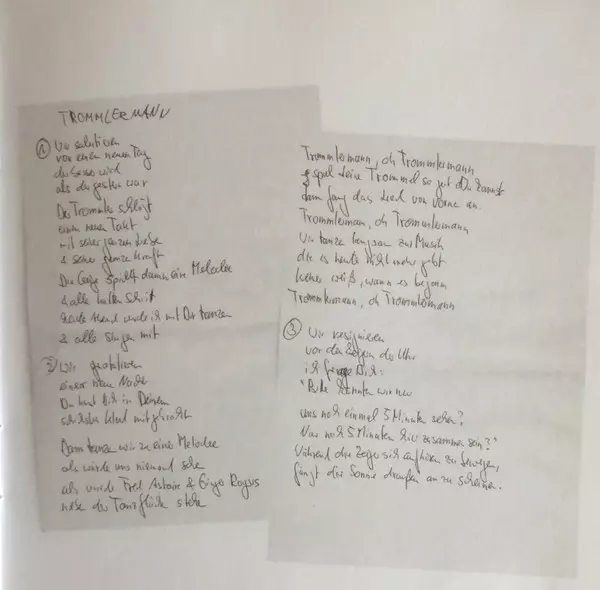 TROMMLERMANN
① Wir salutieren
vor einem neuen Tag
der besser wird
als der gestern war
Der Trommler schlägt
einen neuen Takt
mit seiner ganzen Liebe
& seiner ganzen Kraft
Die Geige spielt dann eine Melodie
& alle halten Schritt
heute Abend werde ich mit Dir tanzen
& alle singen mit
2) Wir gratulieren
einer neuen
Du hast Dich in Deinem
Kleid mitgebracht
Dann tanzen wir zu einer Melodie
als würde uns niemand sehn
als würde Fred Astaire & Ginger Rogers
neben der Tanzfläche stehn
Trommlermann, oh Trommlermann
spiel deine Trommel so gut Du kannst
dann fang das Lied von vorne an.
Trommlermann, oh Trommlermann
Wir tanzen langsam zu Musik
die es heute nicht mehr gibt
keiner weiß, wann es begann
Trommlermann, oh Trommlermann
③ Wir resignieren
vor den Zeigern der Uhr
ich frage Dich:
könnten wir nur
uns noch einmal 5 Minuten sehen?
Nur noch 5 Minuten hier zusammen sein?"
Während die Zeiger sich aufhören zu bewegen,
fängt die Sonne draußen an zu scheinen.